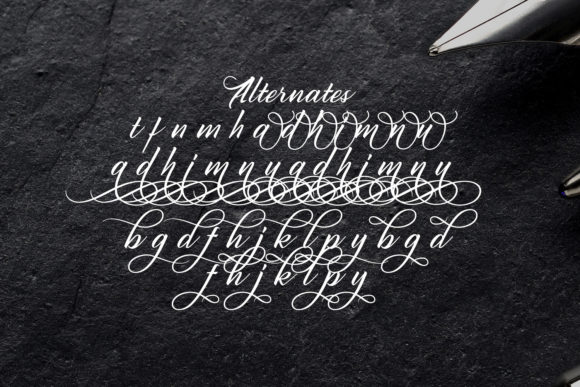 Alternates
t f n m h a d h i m n u
a d h i m n u a d h i m n u
b g d f h j k l p y b g d
f h j k l p y